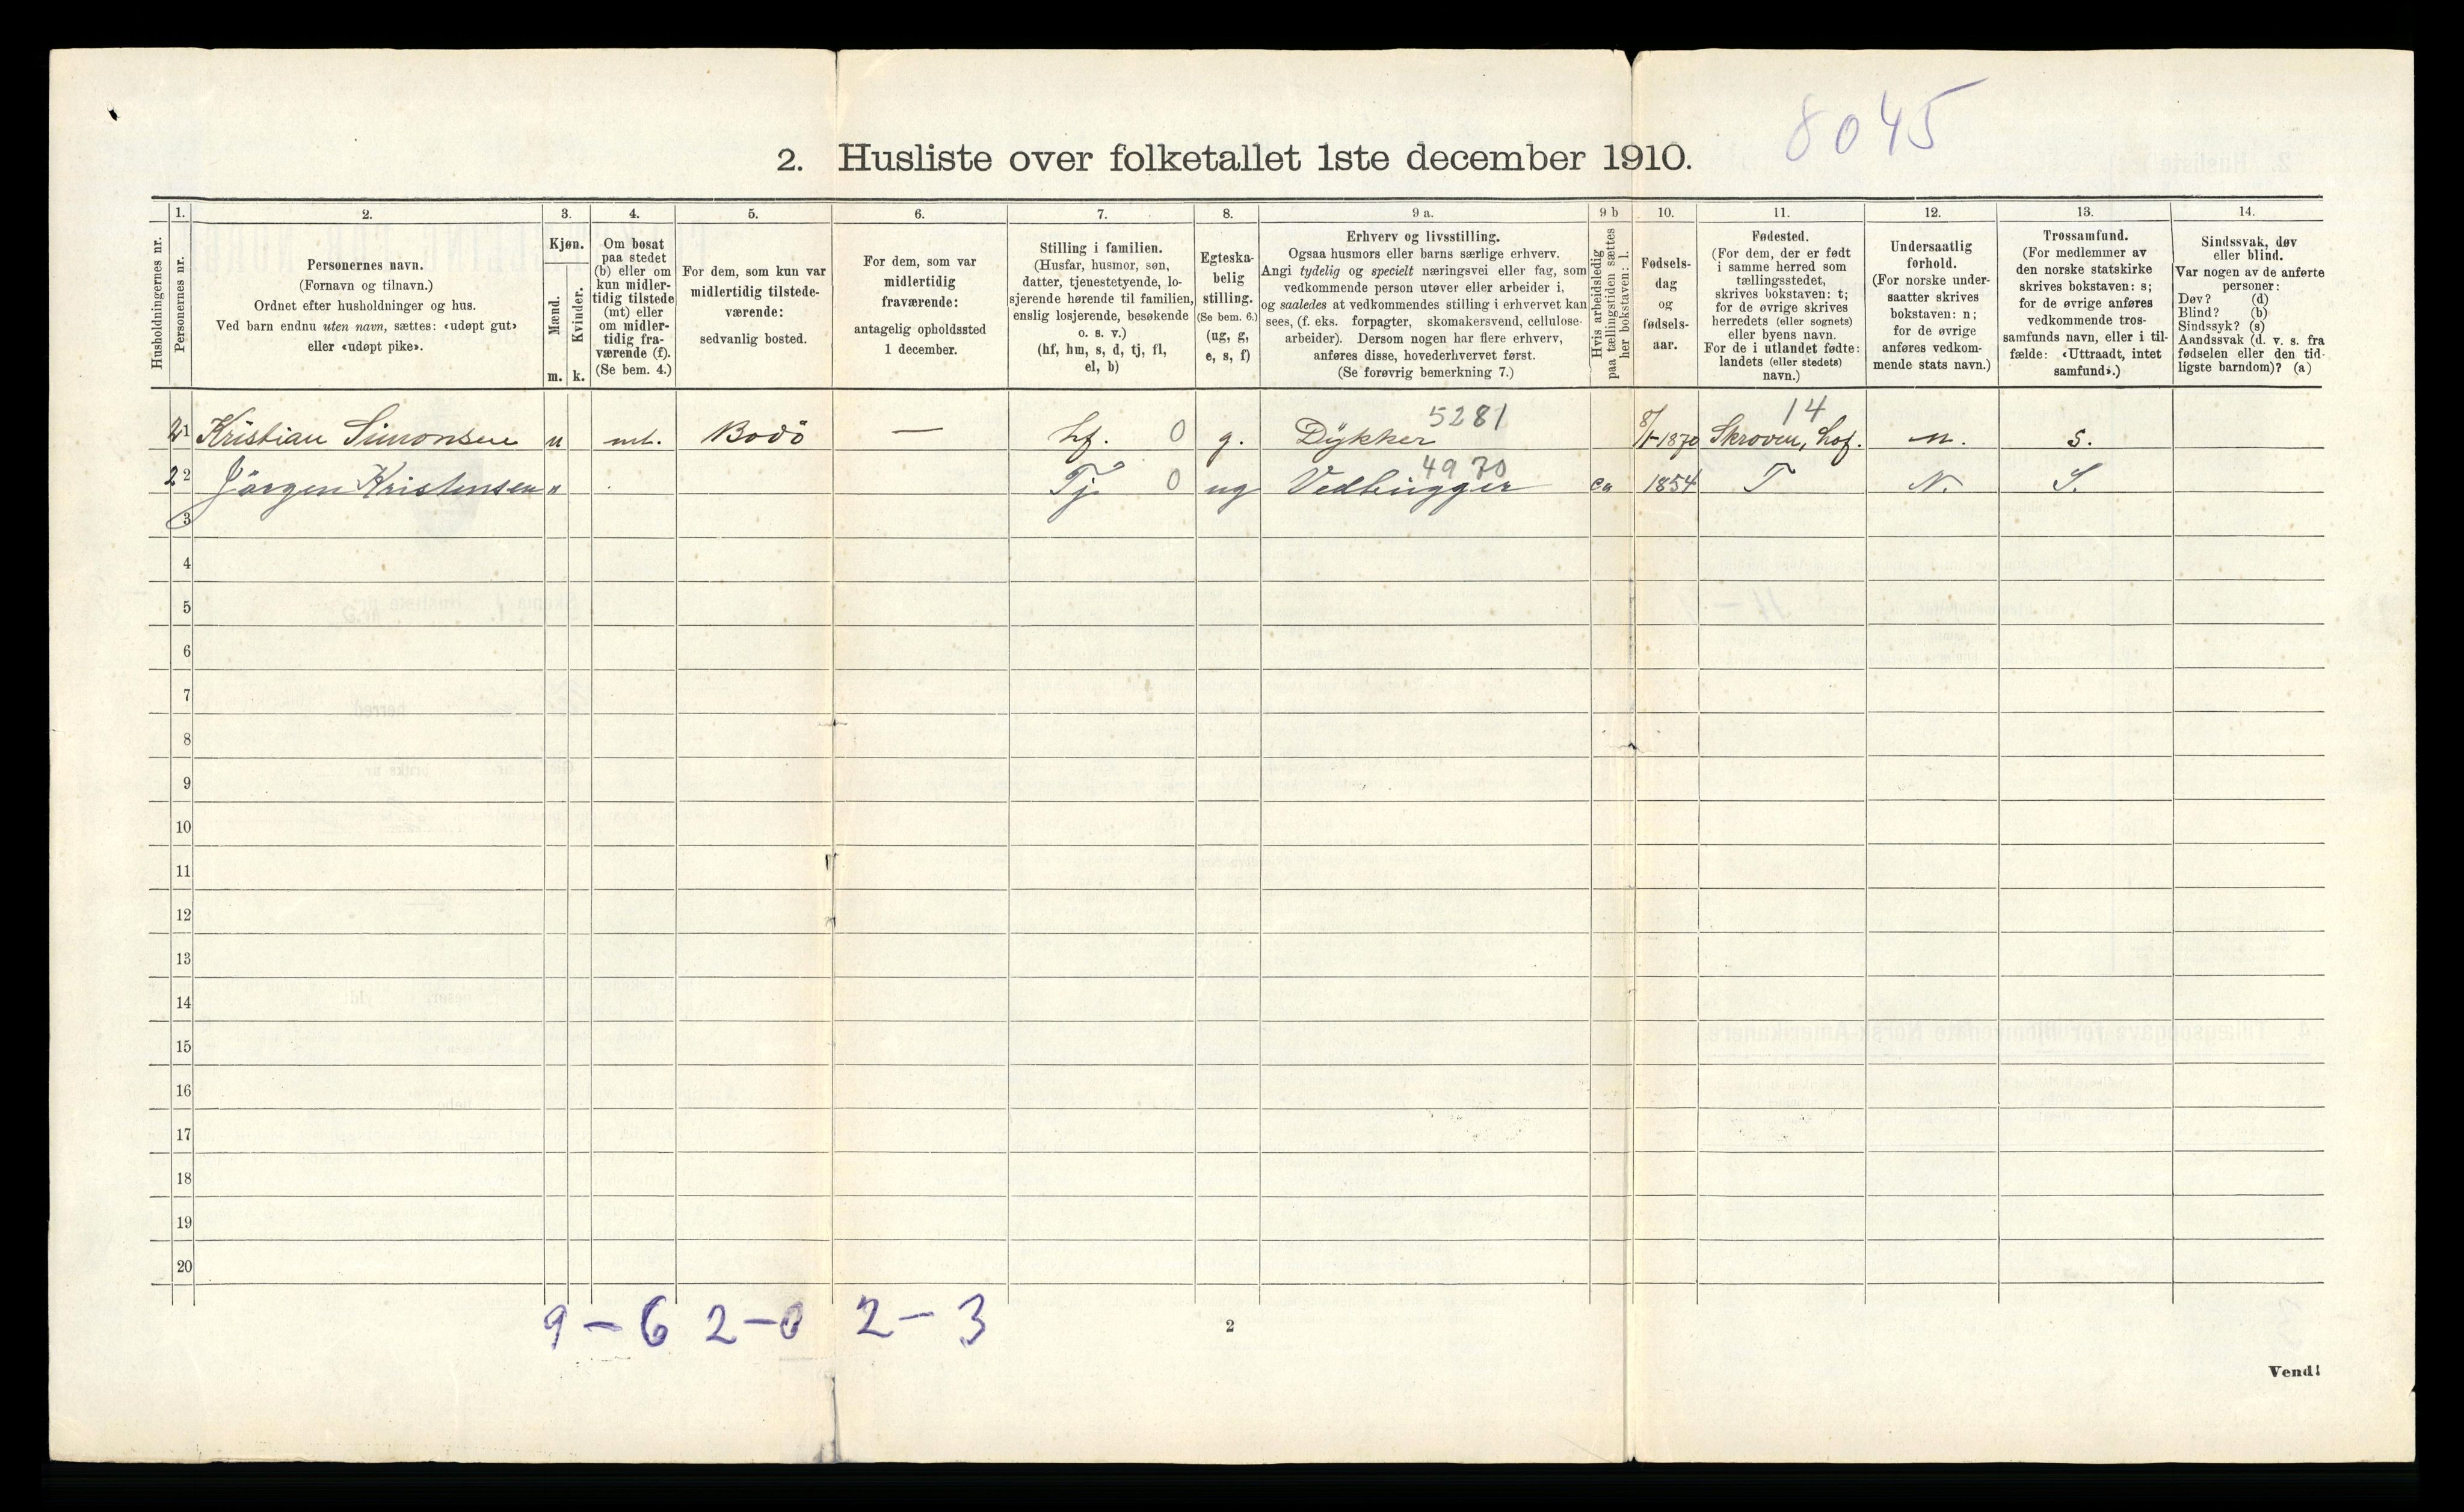 8045
2. Husliste over folketallet 1ste december 1910.
Husholdningernes nr.
1.
Personernes nr.
2.
Personernes navn.
(Fornavn og tilnavn.)
Ordnet efter husholdninger og hus.
Ved barn endnu uten navn, sættes: «udøpt gut»
eller «udøpt pike».
3.
Kjøn.
Mænd.
Kvinder.
m. k.
4.
Om bosat
paa stedet
(b) eller om
kun midler-
tidig tilstede
(mt) eller
om midler-
tidig fra-
værende (f).
(Se bem. 4.)
5.
For dem, som kun var
midlertidig tilstede-
værende:
sedvanlig bosted.
6.
For dem, som var
midlertidig
fraværende:
antagelig opholdssted
1 december.
7.
Stilling i familien.
(Husfar, husmor, søn,
datter, tjenestetyende, lo-
sjerende hørende til familien,
enslig losjerende, besøkende
o. s. v.)
(hf, hm, s, d, tj, fl,
el, b)
8.
Egteska-
belig
stilling.
(Se bem. 6.)
(ug, g,
e, s, f)
9 a.
Erhverv og livsstilling.
Ogsaa husmors eller barns særlige erhverv.
Angi tydelig og specielt næringsvei eller fag, som
vedkommende person utøver eller arbeider i,
og saaledes at vedkommendes stilling i erhvervet kan
sees, (f. eks. forpagter, skomakersvend, cellulose-
arbeider). Dersom nogen har flere erhverv,
anføres disse, hovederhvervet først.
(Se forøvrig bemerkning 7.)
9 b
Hvis arbeidsledig
paa tællingstiden sættes
her bokstaven: l.
10.
Fødsels-
dag
og
fødsels-
aar.
11.
Fødested.
(For dem, der er født
i samme herred som
tællingsstedet,
skrives bokstaven: t;
for de øvrige skrives
herredets (eller sognets)
eller byens navn.
For de i utlandet fødte:
landets (eller stedets)
navn.)
12.
Undersaatlig
forhold.
(For norske under-
saatter skrives
bokstaven: n;
for de øvrige
anføres vedkom-
mende stats navn.)
13.
Trossamfund.
(For medlemmer av
den norske statskirke
skrives bokstaven: s;
for de øvrige anføres
vedkommende tros-
samfunds navn, eller i til-
fælde: «Uttraadt, intet
samfund».)
14.
Sindssvak, døv
eller blind.
Var nogen av de anførte
personer:
Døv? (d)
Blind? (b)
Sindssyk? (s)
Aandssvak (d. v. s. fra
fødselen eller den tid-
ligste barndom)? (a)
5281 14
21 Kristian Simonsen mt. Bodö — hf. 0 g. Dykker 8/1-1870 Skroven, Lof. n. s.
4970
22 Jörgen Kristensen " Tj. 0 ug Vedhugger ca 1854 T N. S.
3
4
5
6
7
8
9
10
11
12
13
14
15
16
17
18
19
20
9 – 6 2 – 0 2 – 3
2
Vend!